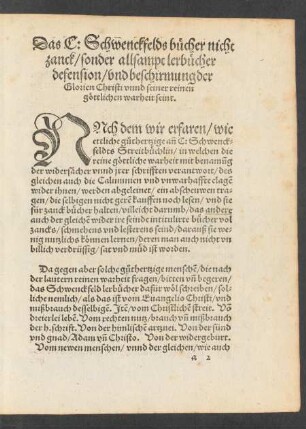 Das C: Schwenckfelds bücher nicht
zanck/sonder allsampt lerbücher
defension/vnd beschirmung der
Glorien Christi vnnd seiner reinen
göttlichen warheit seint.
NAch dem wir erfaren/wie
ettliche gůthertzige añ C: Schwenck-
feldes Streitbüchlin/in welchen die
reine götliche warheit mit benañũg
der widersächer vnnd jrer schrifften verantwort/des
gleichen auch die Calumnien vnd vnwarhaffte clagē
wider ihnen/werden abgeleinet/ein abscheuwen tra-
gen/die selbigen nicht gerē kauffen noch lesen/vnd sie
für zanck bücher halten/villeicht darumb/das andere
auch der gleichē wider ire feinde intitulirte bücher vol
zancks/schmehens vnd lesterens seind/darauß sie we-
nig nutzlichs können lernen/deren man auch nicht vn
billich verdrüssig/sat vnd müd ist worden.
Da gegen aber solche gůthertzige menschē/die nach
der lauteren reinen warheit fragen/bitten vñ begeren/
das Schwenckfeld lerbücher dafür wöl schreiben/sol-
liche nemlich/als das ist vom Euangelio Christi/vnd
mißbrauch desselbigē. Itē/vom Christlichē streit. Võ
dreierlei lebē. Vom rechten nutz/brauch vñ mißbrauch
der h. schrifft. Von der himlischē artznei. Von der sünd
vnd gnad/Adam vñ Christo. Von der widergeburt.
Vom newen menschen/vnnd der gleichen/wie auch
a 2